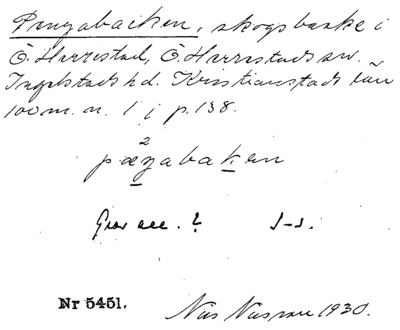 Pengabacken, skogsbacke i
Ö. Herrestad, Ö. Herrestads sn.
Ingelstads hd. Kristianstads län
100 m. n. 1 i p. 138.
2
pæŋabaken
Grav acc. ? J-s.
Nr 5451.
Nils 1930.